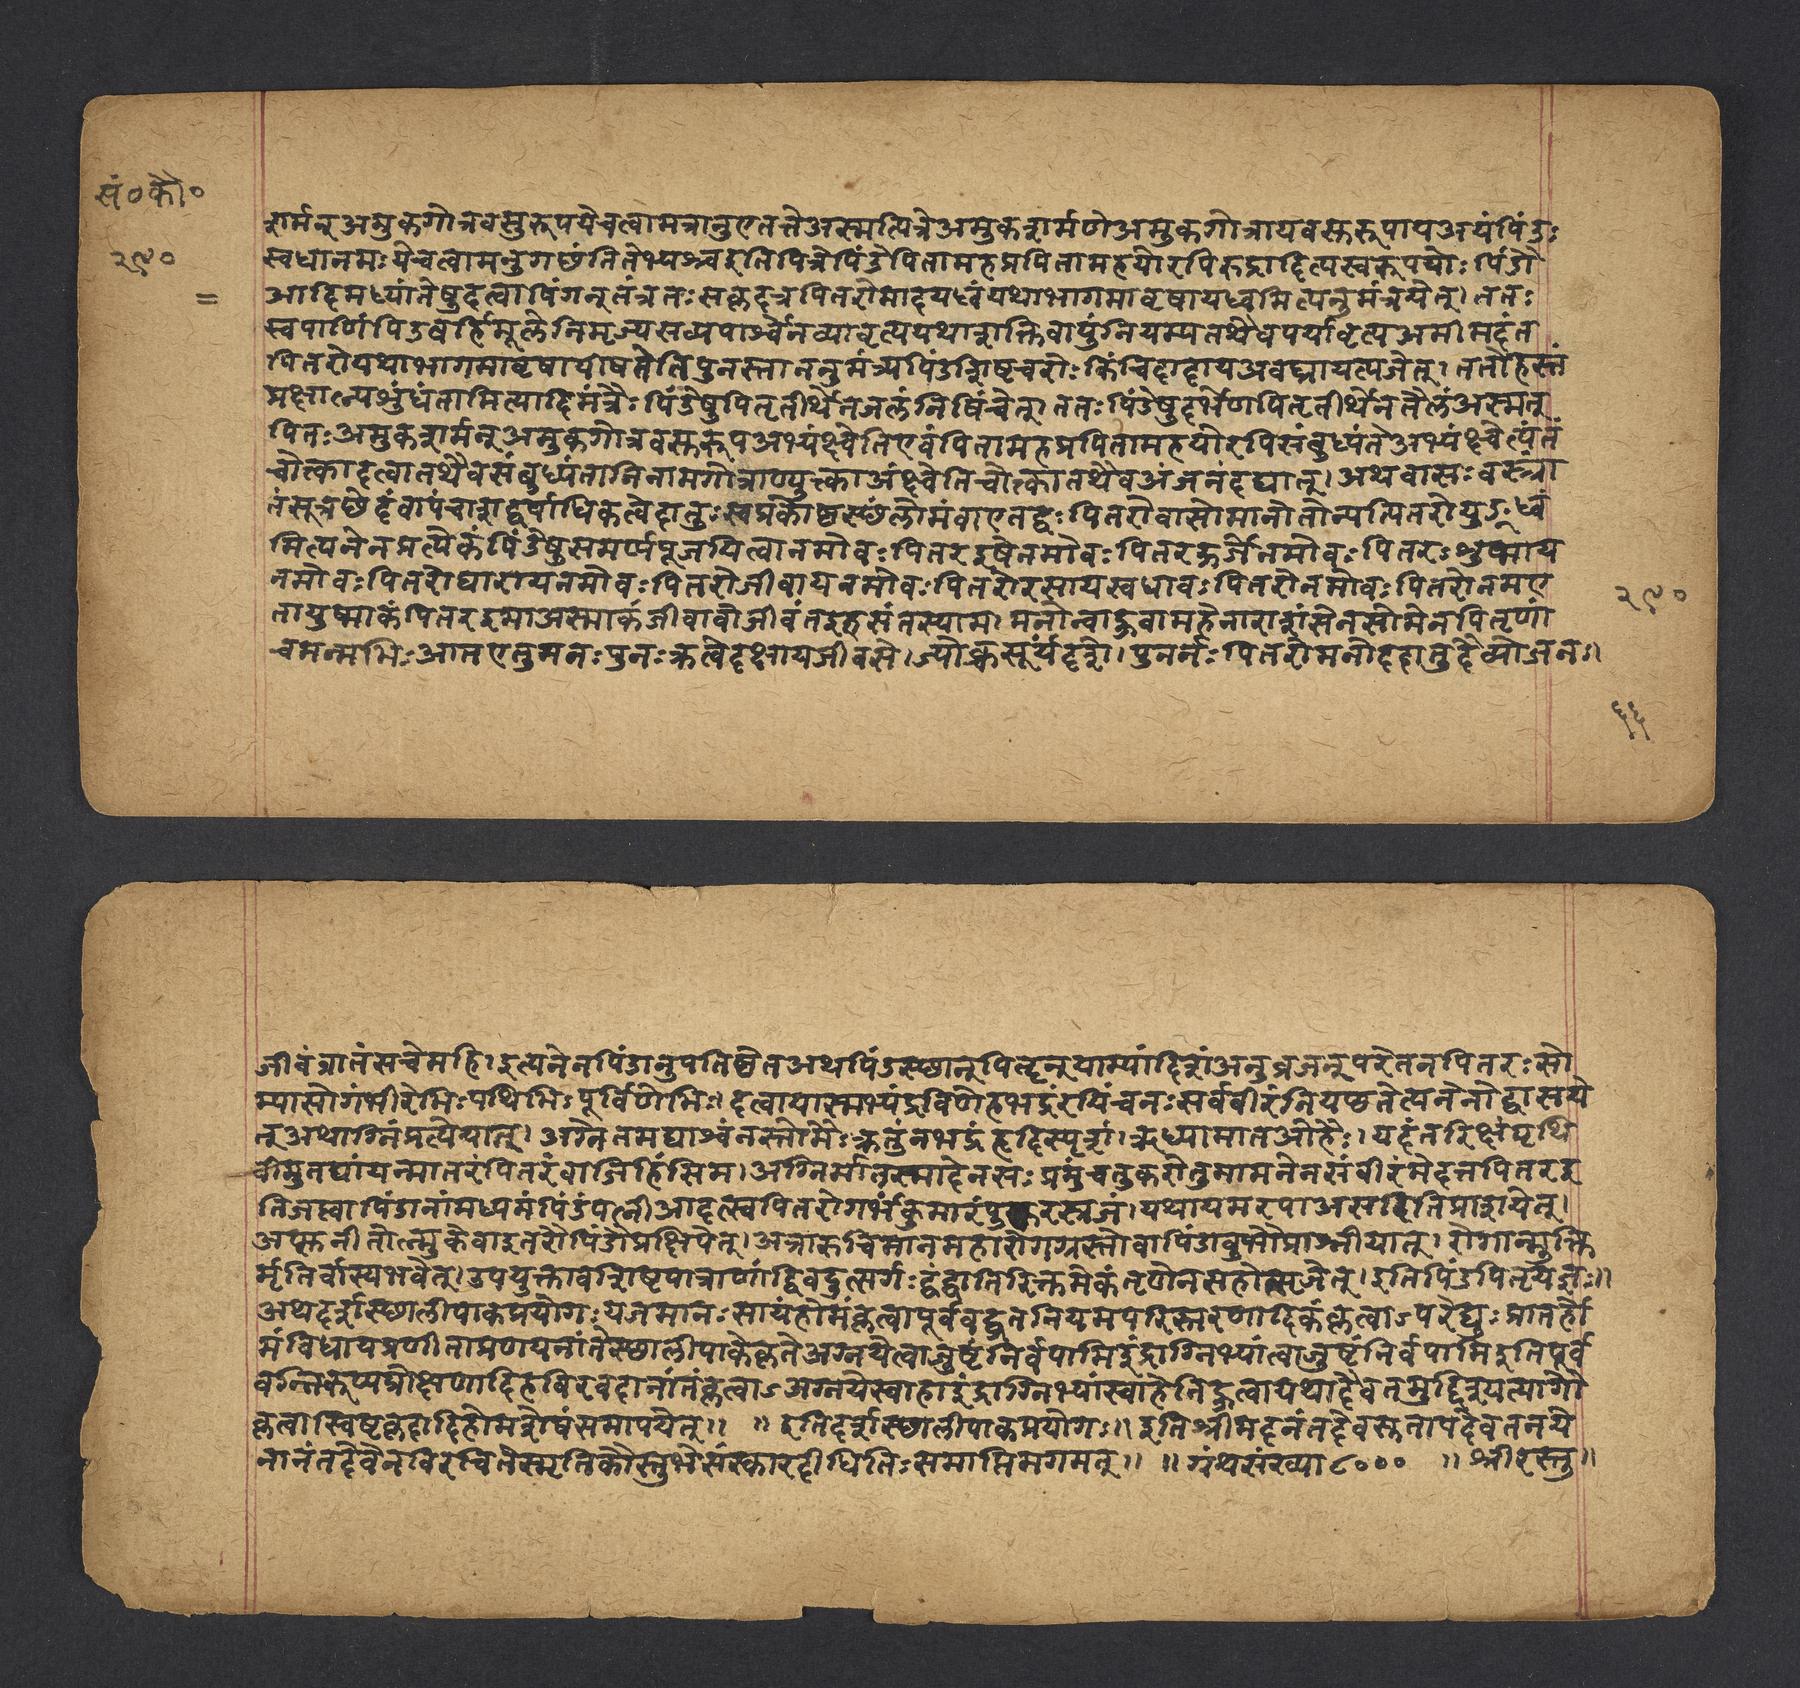 सं०कौ०
२९०
=
शर्मन्अमुकगोत्रवसुरूपयेचत्वामत्रानुएतत्तेअस्मत्पित्रेअमुकशर्मणेअमुकगोत्रायवसुरूपायअयंपिंडः
स्वधानमःयेचत्वामनुगछंतितेभ्यश्चइतिपित्रेपिंडंपितामहप्रपितामहयोरपिरुद्रादित्यस्वरूपयोःपिंडौ
आदिमध्यांतेषुदत्वापिंगनुतंत्रतःसकृदत्रपितरोमादयध्वंयथाभागमावृषायध्वमित्यनुमंत्रयेत्।ततः
स्वपाणिंपिंडबर्हिमूलेनिमृज्यसव्यपार्श्वेनव्यावृत्ययथाशक्तिवायुंनियम्यतथैवपर्यावृत्यअमीमदंत
पितरोयथाभागमावृषायीषतेतिपुनस्ताननुमंत्र्यपिंडशिष्टचरोःकिंचिदादायअवघ्रायत्यजेत्।ततोहस्तं
प्रक्षाल्यशुंधंतामित्यादिमंत्रैःपिंडेषुपितृतीर्थेनजलंनिषिंचेत्।ततःपिंडेषुदर्भेणपितृतीर्थेनतैलंअस्मत्
पितःअमुकशर्मन्अमुकगोत्रवसुरूपअभ्यंक्ष्वेतिएवंपितामहप्रपितामहयोरपिसंबुध्यंतेअभ्यंक्ष्वेत्यंतं
चोत्कादत्वातथैवसंबुध्यंतान्निनामगोत्राण्युत्काअंक्ष्वेतिचोत्कातथैवअंजनंदद्यात्।अथवासःवस्त्रां
तंसूत्रछेदंवापंचाशद्वर्षाधिकत्वेदातुःस्वप्रकोष्ठस्छंलोमंवाएतद्वःपितरोवासोमानोतोन्यत्पितरोयुङ्ध्व
मित्यनेनप्रत्येकंपिंडेषुसमर्प्यपूजयित्वानमोवःपितरइषेनमोवःपितरऊर्जेनमोवःपितरःशुष्माय
नमोवःपितरोघारोयनमोवःपितरोजीवायनमोवःपितरोरसायस्वधावःपितरोनमोवःपितरोनमए
तायुष्माकंपितरइमाअस्माकंजीवावोजीवंतइहसंतस्याम।मनोन्वाहुवामहेनाराशंसेनसोमेनपितृणां
चमन्मभिःआतएतुमनःपुनःक्रत्वेदक्षायजीवसे।ज्योक्चसूर्यंदृशे।पुनर्नःपितरोमनोददातुदैव्योजनः।
२९०
६६
जीवंव्रातंसचेमहि।इत्यनेनपिंडानुपतिष्ठेतअथपिंडस्छान्पितॄन्याम्यांदिशंअनुव्रजन्परेतनपितरःसो
म्यासोगंभीरेभिःपथिभिःपूर्विणेभिः।दत्वायास्मभ्यंद्रविणेहभद्रंरयिंचनःसर्ववीरंनियच्छतेत्यनेनोद्वासये
त्अथाग्निंप्रत्येयात्।अग्नेतमद्याश्वंनस्तोमेःक्रतुंनभद्रंहृदिस्पृशं।ऋध्यामातओहैः।यदंतरिक्षंपृथि
वीमुतद्यांयन्मातरंपितरंवाजिहिंसिम।अग्निर्मातस्मादेनसःप्रमुंचतुकरोतुमामनेनसंवीरंमेदत्तपितरइ
तिजप्त्वापिंडानांमध्यमंपिंडंपत्नीआदत्स्वपितरोगर्भंकुमारंपुष्करस्त्रजं।यथायमरपाअसदितिप्राशयेत्।
अप्स्वनीतोल्मुकेवाइतरौपिंडौप्रक्षिपेत्।अन्नारुचिमान्महारोगग्रस्तोवापिंडावुभौप्राश्नीयात्।रोगान्मुक्ति
र्मृतिर्वास्यभवेत्।उपयुक्तावशिष्टपात्राणांद्विवदुत्सर्गःद्वंद्वातिरिक्तमेकंतृणेनसहोत्सृजेत्।इतिपिंडपितृयज्ञः॥
अथदर्शस्छालीपाकप्रयोगःयजमानःसायंहोमंकृत्वापूर्ववद्व्रतनियमपरिस्तरणादिकंकृत्वाऽपरेद्युःप्रातर्हो
मंविधायप्रणीताप्रणयनांतेस्छालीपाकेकृतेअग्नयेत्वाजुष्टंनिर्वपामिइंद्राग्निभ्यांत्वाजुष्टंनिर्वपामिइतिपूर्व
वन्निरूप्यप्रोक्षणादिहविरवदानांतंकृत्वाऽअग्नयेस्वाहाइंद्राग्निभ्यांस्वाहेतिहुत्वायथादैवतमुद्दिश्यत्यागौ
कृत्वास्विष्टकृदादिहोमशेषंसमापयेत्॥ ॥इतिदर्शस्छालीपाकप्रयोगः॥इतिश्रीमदनंतदेवसुतापदेवतनये
नानंतदेवेनविरचितेस्मृतिकौस्तुभेसंस्कारदीधितिःसमाप्तिमगमत्॥ ॥ग्रंथसंख्या८००० ॥श्रीरस्तु॥